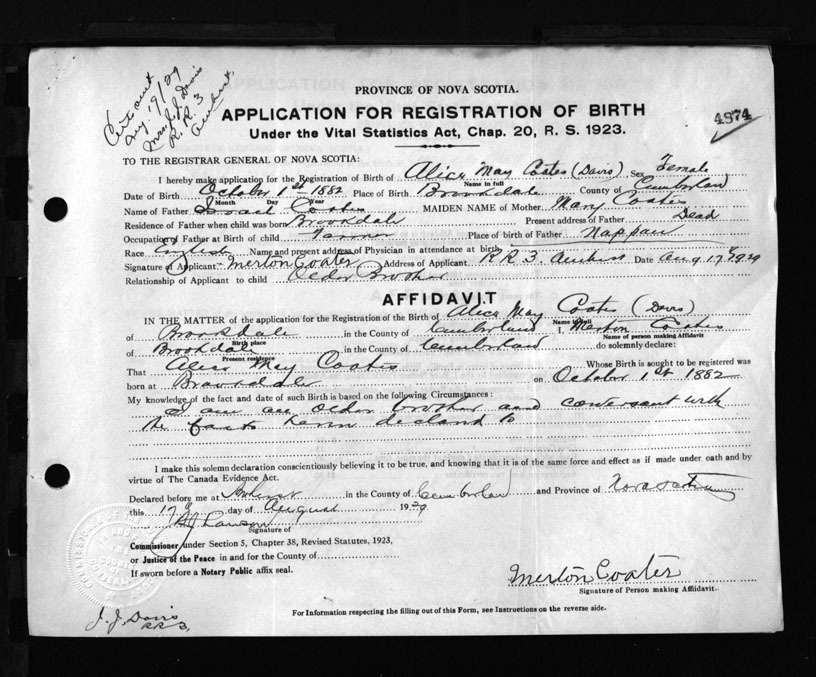 Cert out
Aug 19/29
Mrs J. J. Davis
R.R. 3
Amherst.
PROVINCE OF NOVA SCOTIA.
APPLICATION FOR REGISTRATION OF BIRTH
4874
Under the Vital Statistics Act, Chap. 20, R. S. 1923.
TO THE REGISTRAR GENERAL OF NOVA SCOTIA:
I hereby make application for the Registration of Birth of Alice May Coates (Davis) Sex Female
Name in full
Date of Birth October 1st 1882 Place of Birth Brookdale County of Cumberland
Month Day Year
Name of Father Coates MAIDEN NAME of Mother Mary Coates
Residence of Father when child was born Brookdale Present address of Father Dead
Occupation of Father at Birth of child Farmer Place of birth of Father Nappan
Race English Name and present address of Physician in attendance at birth
Signature of Applicant Merton Coates Address of Applicant R R 3. Amherst Date Aug 17th 1929
Relationship of Applicant to child Older Brother
AFFIDAVIT
IN THE MATTER of the application for the Registration of the Birth of Alice May Coates (Davis)
Name in full
of Brookdale in the County of Cumberland I, Merton Coates
Birth place Name of person making Affidavit
of Brookdale in the County of Cumberland do solemnly declare:
Present residence
That Alice May Coates Whose Birth is sought to be registered was
born at Brookdale on October 1st 1882
My knowledge of the fact and date of such Birth is based on the following Circumstances:
I am an older brother and conversant with
the facts herein declared to
I make this solemn declaration conscientiously believing it to be true, and knowing that it is of the same force and effect as if made under oath and by
virtue of The Canada Evidence Act.
Declared before me at Amherst in the County of Cumberland and Province of Nova Scotia
this 17th day of August 1929
Lawson
Signature of
Commissioner under Section 5, Chapter 38, Revised Statutes, 1923,
or Justice of the Peace in and for the County of
If sworn before a Notary Public affix seal.
Merton Coates
Signature of Person making Affidavit.
For Information respecting the filling out of this Form, see Instructions on the reverse side.
J. J. Davis
R.R 3.